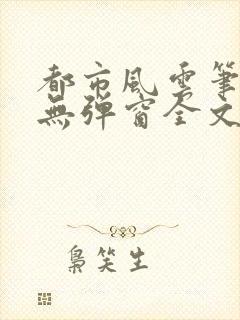 都市風雲筆
無彈窗全文
梟笑生